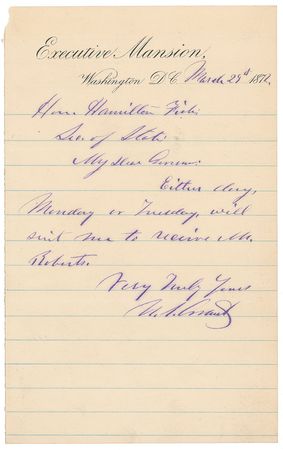 Executive Mansion,
Washington D.C. March 29d 1872.
Hon. Hamilton Fish
Sec. of State:
My Dear Governor:
Either day,
Monday or Tuesday, will
suit me to receive Mr.
Roberts.
Very Truly Yours
U. S. Grant